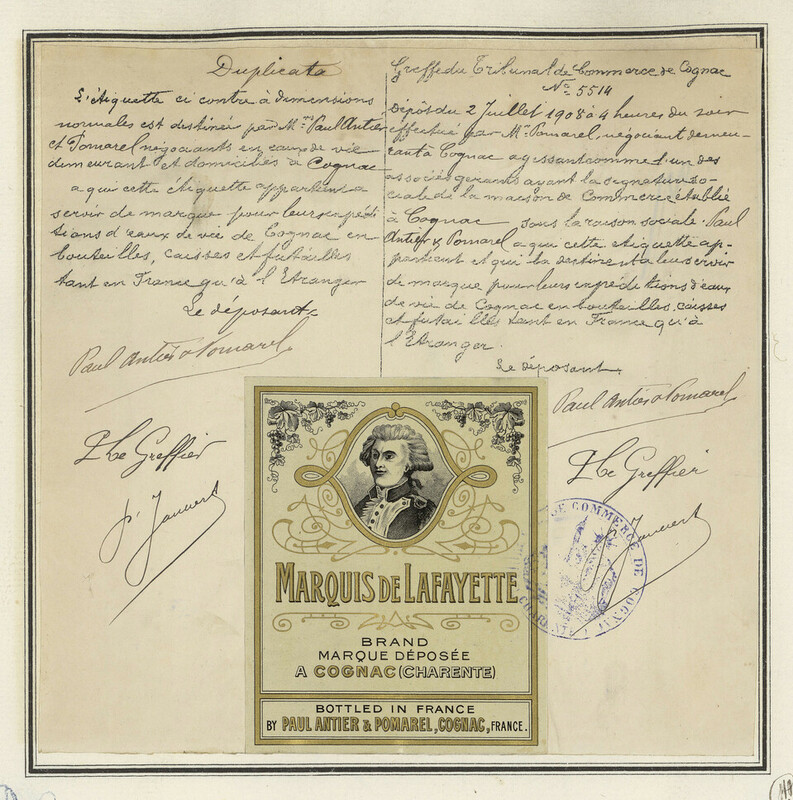 Duplicata
L'étiquette ci contre à dimensions
normales est destinée par Mrs Paul Antier
et Pomarel négociants en eaux de vie
demeurant et domiciliés à Cognac
a qui cette étiquette appartient a
servir de marque pour leurs expédi
tions d'eaux de vie de Cognac en
bouteilles, caisses et futailles
tant en France qu'à l'Etranger
Le déposant
Paul Antier & Pomarel
Le Greffier
Greffe du Tribunal de Commerce de Cognac
No 5514
Dépôt du 2 Juillet 1908 à 4 heures du soir
effectué par Mr Pomarel, négociant demeu-
rant à Cognac agissant comme l'un des
associés gérants ayant la signature so-
ciale de la maison de Commerce établie
à Cognac sous la raison sociale. Paul
Antier & Pomarel a qui cette étiquette ap-
partient et qui la destinent a leur servir
de marque pour leurs expéditions d'eaux
de vie de Cognac en bouteilles, caisses
et futailles tant en France qu'à
l'Etranger.
Le déposant
Paul Antier & Pomarel
Le Greffier
DE COMMERCE DE COGNAC
MARQUIS DE LAFAYETTE
BRAND
MARQUE DÉPOSÉE
A COGNAC (CHARENTE)
BOTTLED IN FRANCE
BY PAUL ANTIER & POMAREL, COGNAC, FRANCE.